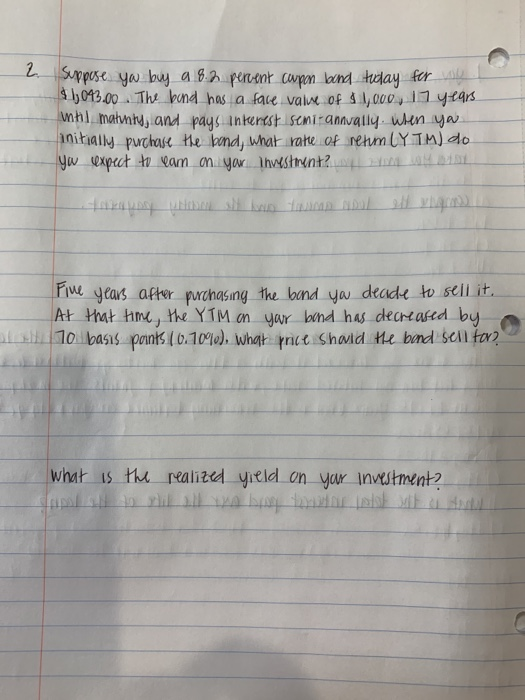 2. Suppose you buy a 8.2 percent coupon bond today for
$1,043.00. The bond has a face value of $1,000, 17 years
until maturity, and pays interest semi-annually. When you
initially purchase the bond, what rate of return (YTM) do
you expect to earn on your investment?
Five years after purchasing the bond you decide to sell it.
At that time, the YTM on your bond has decreased by
70 basis points (0.70%). What price should the bond sell for?
What is the realized yield on your investment?